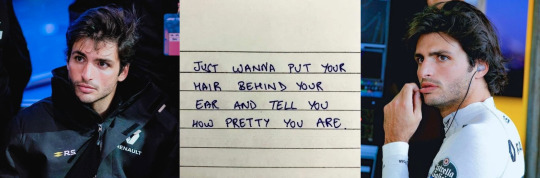 JUST WANNA PUT YOUR
HAIR BEHIND YOUR
EAR AND TELL YOU
HOW PRETTY YOU ARE.
RS
RENAULT
Estrella
Galicia